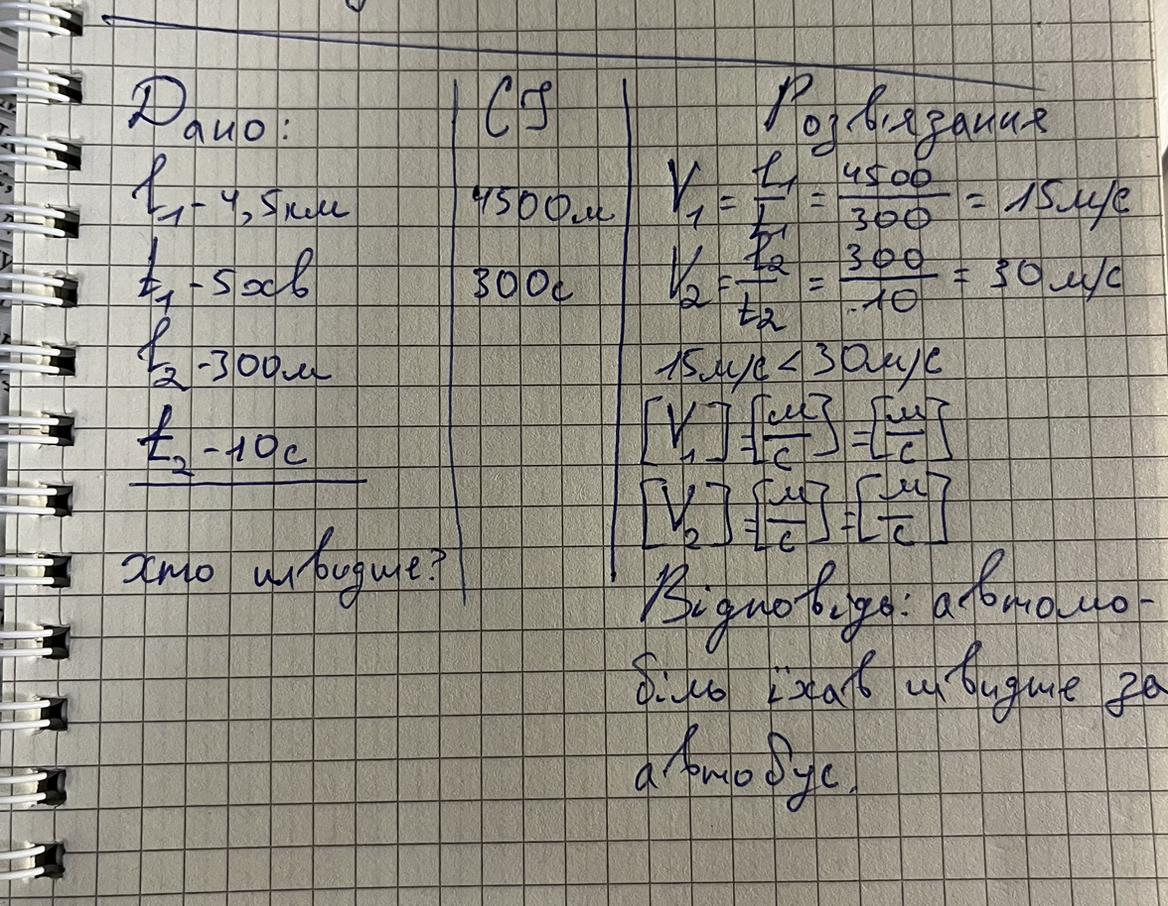 Дано:
l₁ - 4,5км
t₁ - 5хв
l₂ - 300м
t₂ - 10с
хто швидше?
СІ
4500м
300с
Розв'язання
V₁ = l₁/t₁ = 4500/300 = 15м/с
V₂ = l₂/t₂ = 300/10 = 30м/с
15м/с < 30м/с
[V₁] = [м/с] = [м/с]
[V₂] = [м/с] = [м/с]
Відповідь: автомо-
біль їхав швидше за
автобус.